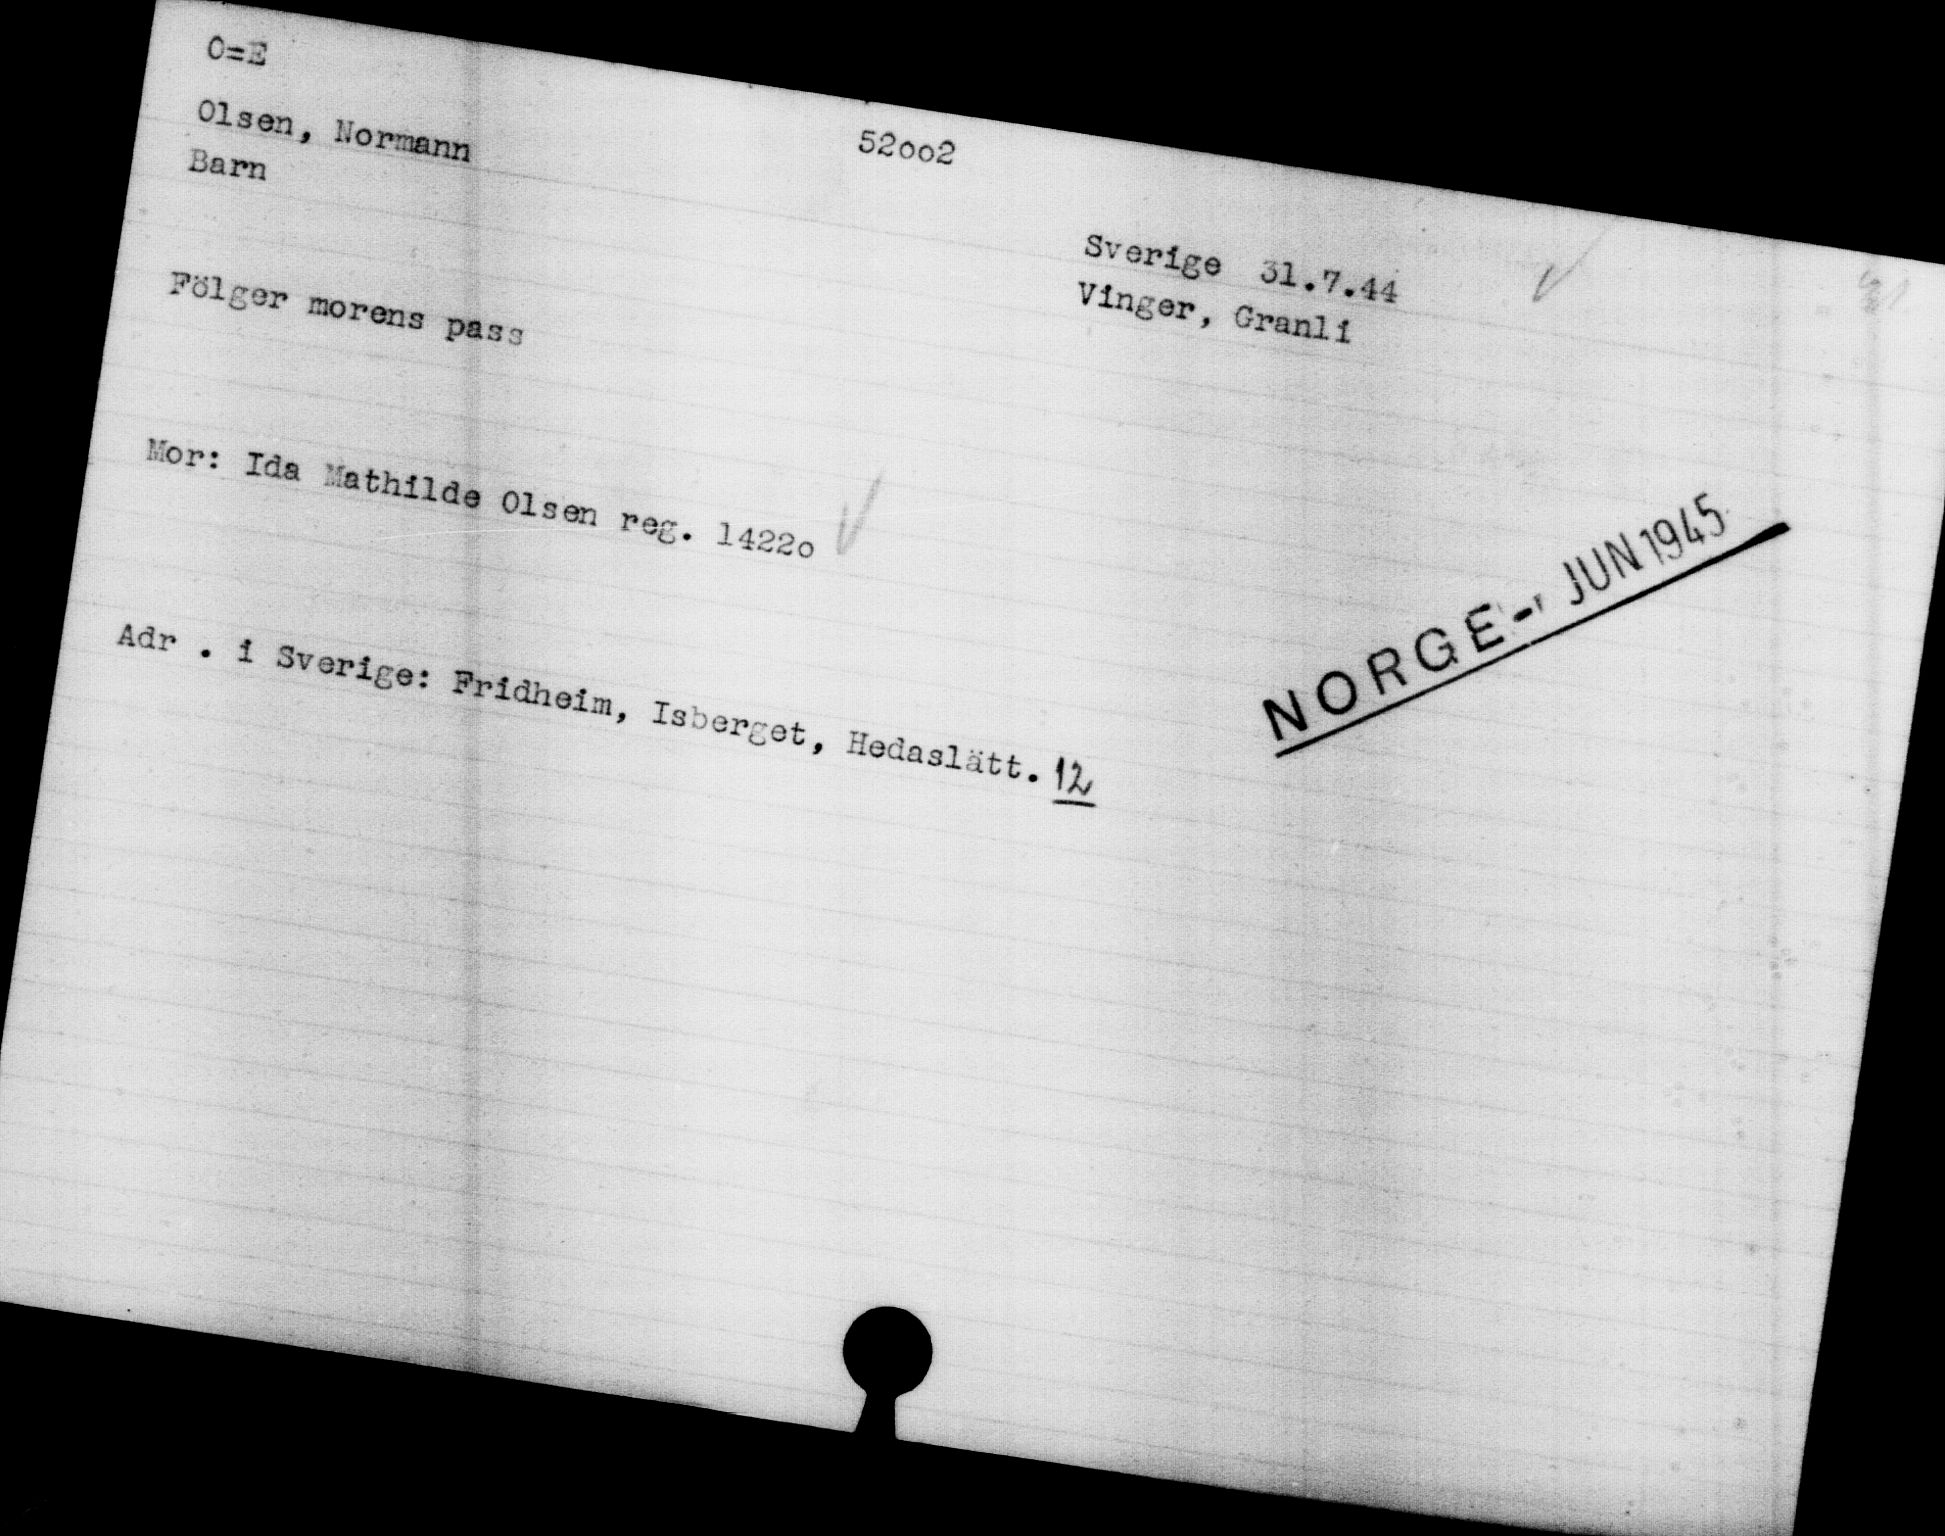 O=E
Olsen, Normann 52oo2
Barn
Sverige 31.7.44
Vinger, Granli
Fölger morens pass
Mor: Ida Mathilde Olsen reg. 1422o
Adr . i Sverige: Fridheim, Isberget, Hedaslätt. 12
NORGE - JUN 1945